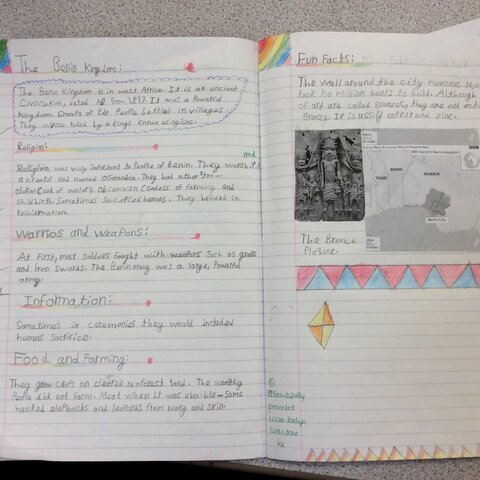 The Benin Kingdom:
The Benin Kingdom is in west Africa. It is an ancient
Civilisation, dated AD 900-1897. It was a
Kingdom. Groups of Edo People Settled in villages.
They were ruled by a kings known as ogisos.
Religion:
Religion was very important to People of Benin. They worship
a creator god named Osanobua. They had other
olokun God of water, Obiemwen Goddess of Farming and
childbirth. Sometimes Sacrificed humans. They belived in
reincarnation
Warriors and Weapons:
At First, most Soldiers fought with weapons such as
and Iron Swords. The Benin army was a large, Powerful
army
Information:
Sometimes in ceremonies they would included
human Sacrifice.
Food and Farming:
They grew crops on cleared rainforest land. The wealthy
People did not farm. Meat when it was - Some
hunted elephants and leopards from ivory and skin.
Fun Facts:
The wall around the city measures
took 150 million hours to build. Although
of art are called Bronzes, they are not
Bronze. It is usually copper and zinc.
BBC
TOGO
BENIN
NIGERIA
Benin City
The Bronze
Plaque.
Beautifully
presented
work
well done